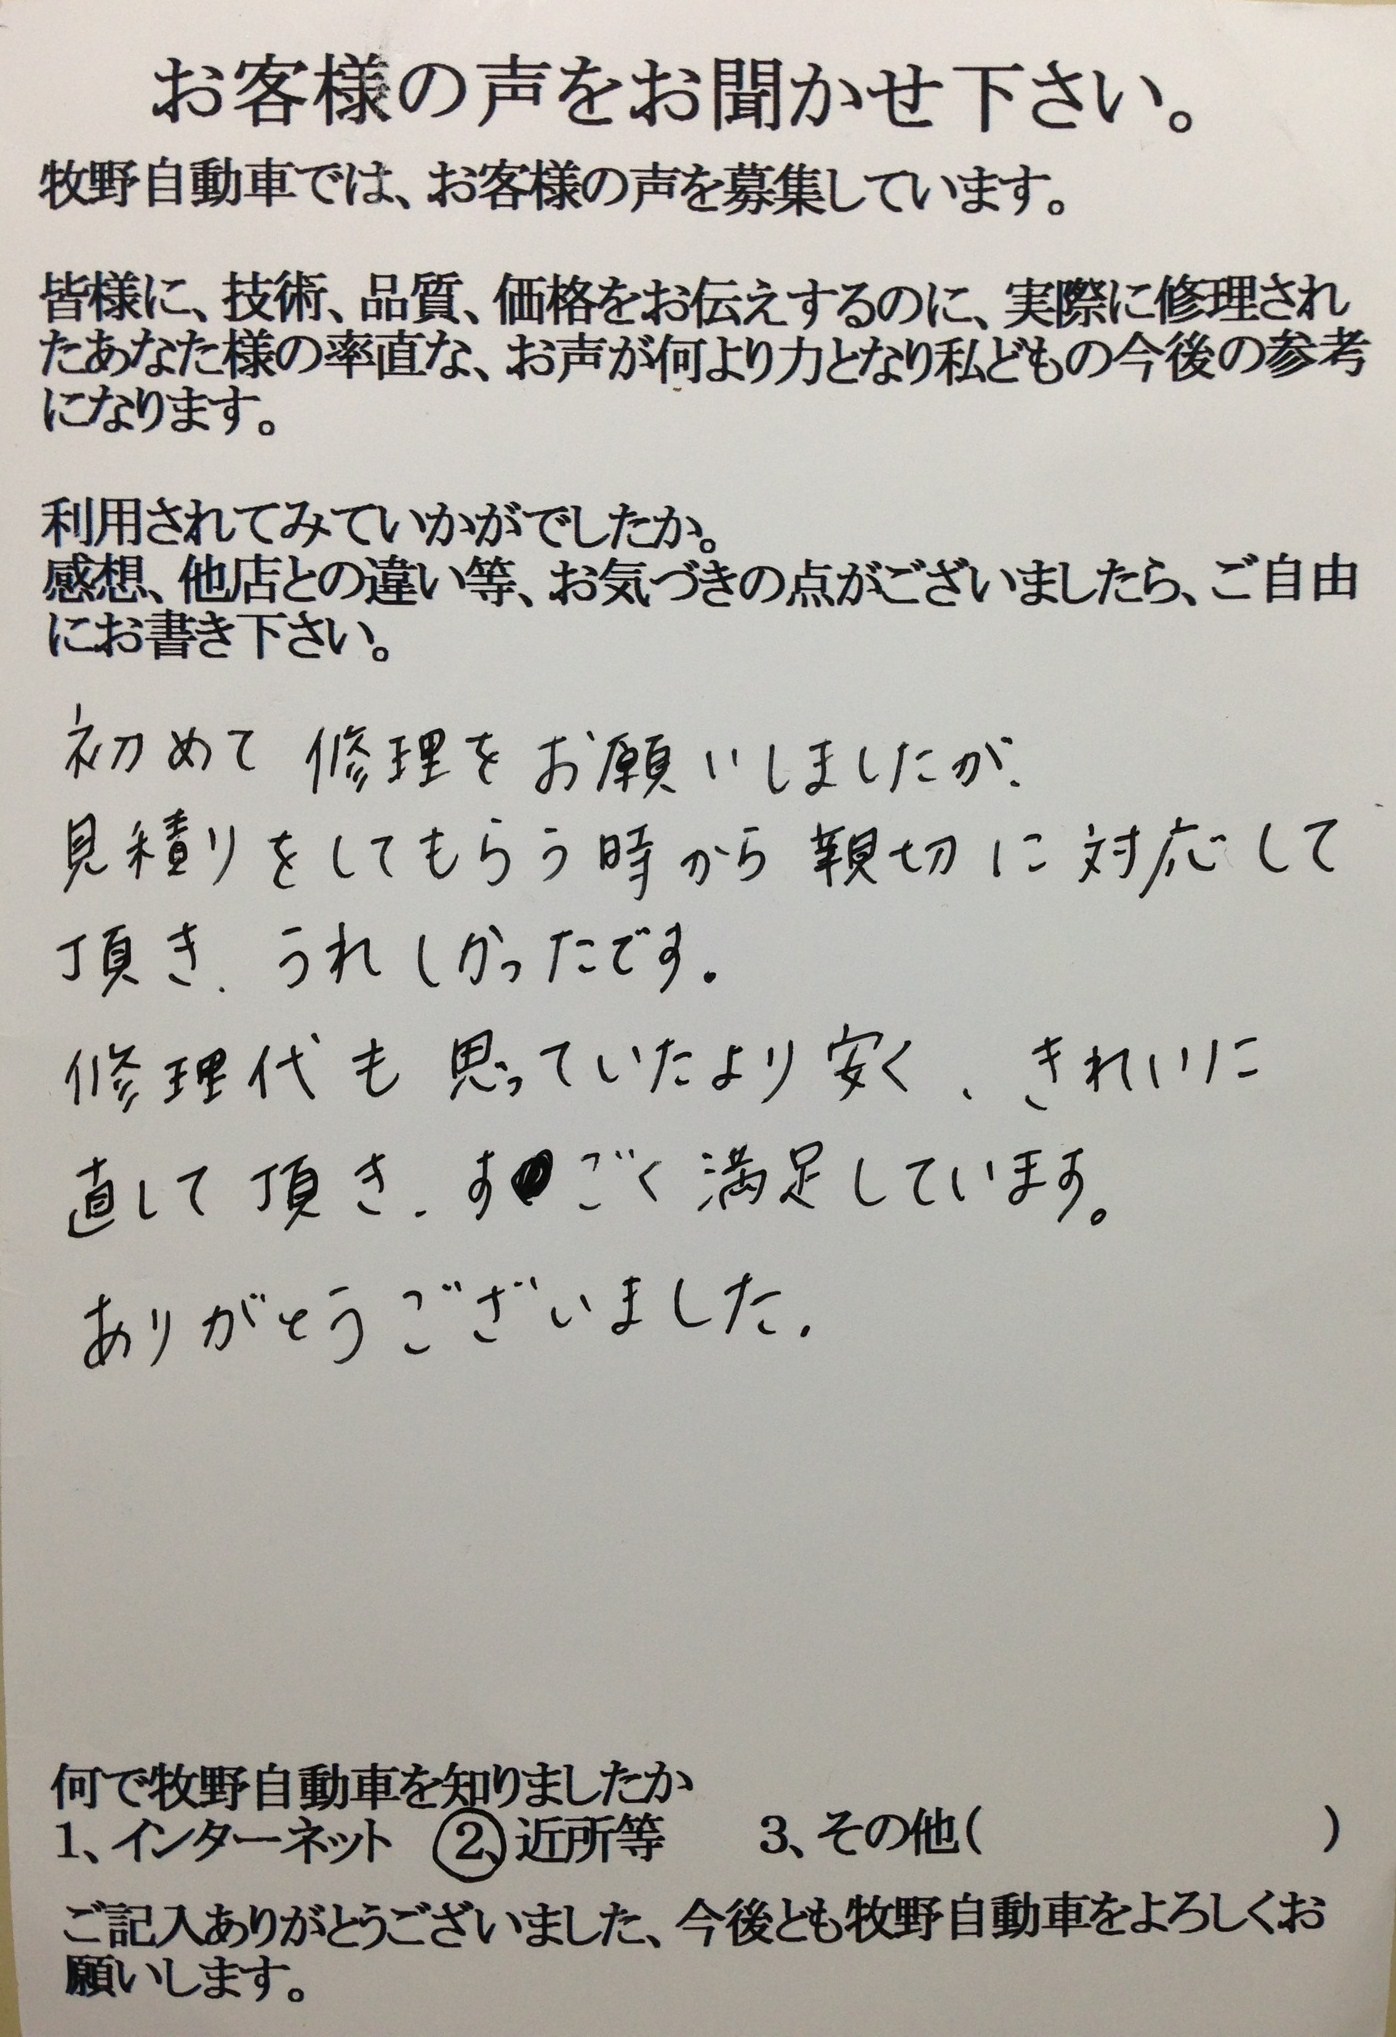 お客様の声をお聞かせ下さい。
牧野自動車では、お客様の声を募集しています。
皆様に、技術、品質、価格をお伝えするのに、実際に修理され
たあなた様の率直な、お声が何より力となり私どもの今後の参考
になります。
利用されてみていかがでしたか。
感想、他店との違い等、お気づきの点がございましたら、ご自由
にお書き下さい。
初めて修理をお願いしましたが、
見積りをしてもらう時から親切に対応して
頂き、うれしかったです。
修理代も思っていたより安く、きれいに
直して頂き、すごく満足しています。
ありがとうございました。
何で牧野自動車を知りましたか
1、インターネット 2、近所等 3、その他( )
ご記入ありがとうございました、今後とも牧野自動車をよろしくお
願いします。